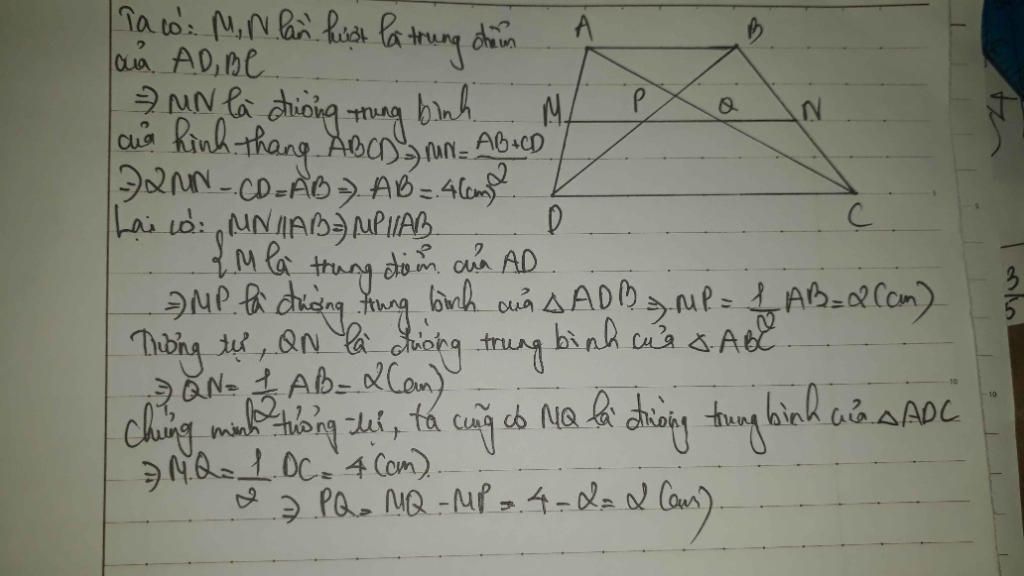 Ta có: M, N lần lượt là trung điểm
của AD, BC
⇒ MN là đường trung bình
của hình thang ABCD ⇒ MN = AB+CD/2
⇒ 2MN - CD = AB ⇒ AB = 4(cm)
Lại có: { MN//AB ⇒ MP//AB
M là trung điểm của AD
⇒ MP là đường trung bình của △ADB ⇒ MP = 1/2 AB = 2(cm)
Tương tự, QN là đường trung bình của △ABC
⇒ QN = 1/2 AB = 2(cm)
Chứng minh tương tự, ta cũng có MQ là đường trung bình của △ADC
⇒ MQ = 1/2 DC = 4(cm)
⇒ PQ = MQ - MP = 4 - 2 = 2(cm)
A B
M P Q N
D C
3/5
10
10